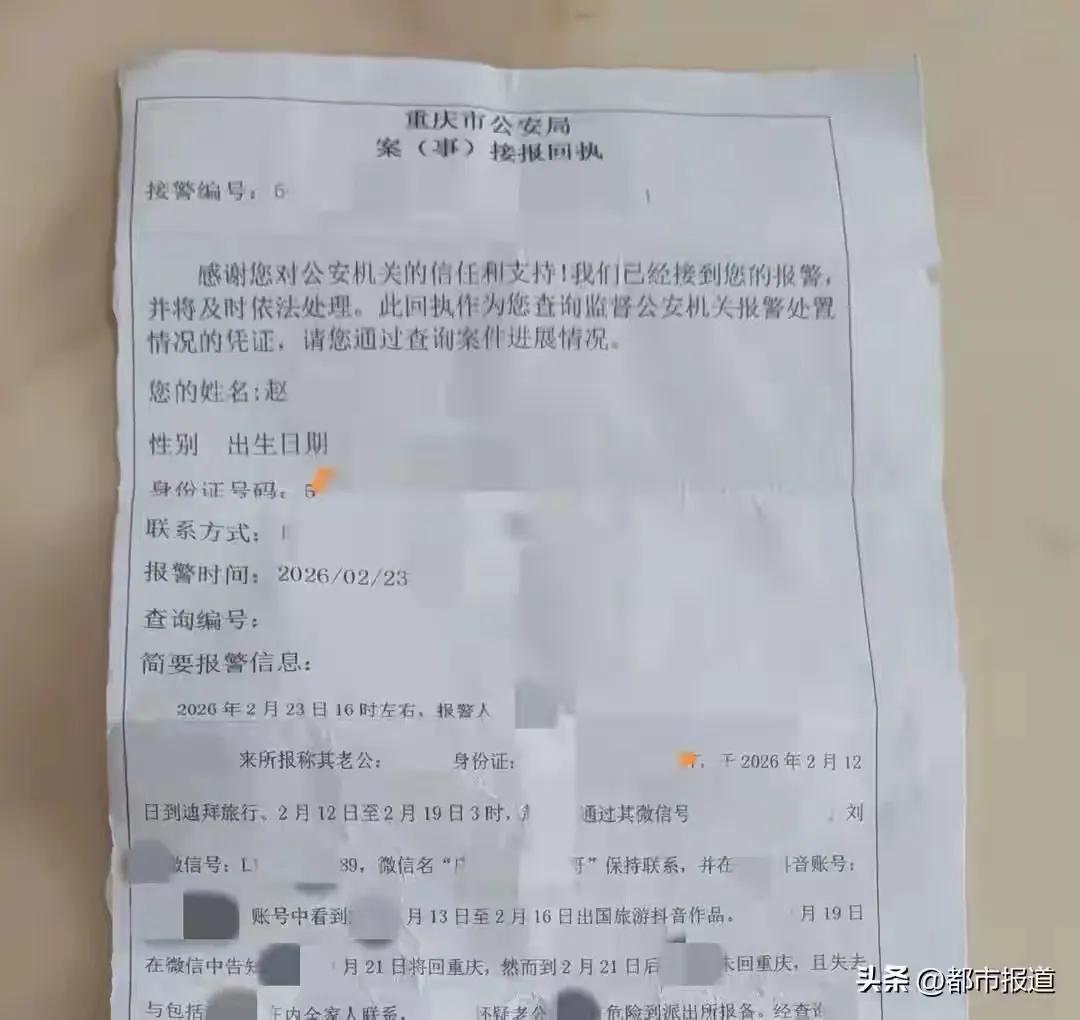 重庆市公安局
案（事）接报回执
接警编号：6
感谢您对公安机关的信任和支持！我们已经接到您的报警，
并将及时依法处理。此回执作为您查询监督公安机关报警处置
情况的凭证，请您通过查询案件进展情况。
您的姓名:赵
性别 出生日期
身份证号码：5
联系方式：1
报警时间：2026/02/23
查询编号：
简要报警信息：
2026年2月23日16时左右、报警人
来所报称其老公： 身份证： 于2026年2月12
日到迪拜旅行、2月12日至2月19日3时， 通过其微信号 刘
微信号：L 89，微信名“ 哥”保持联系，并在 抖音账号：
账号中看到 月13日至2月16日出国旅游抖音作品。 月19日
在微信中告知 月21日将回重庆，然而到2月21日后 未回重庆，且失去
与包括 年内全家人联系， 怀疑老公 危险到派出所报备。经查
头条 @都市报道